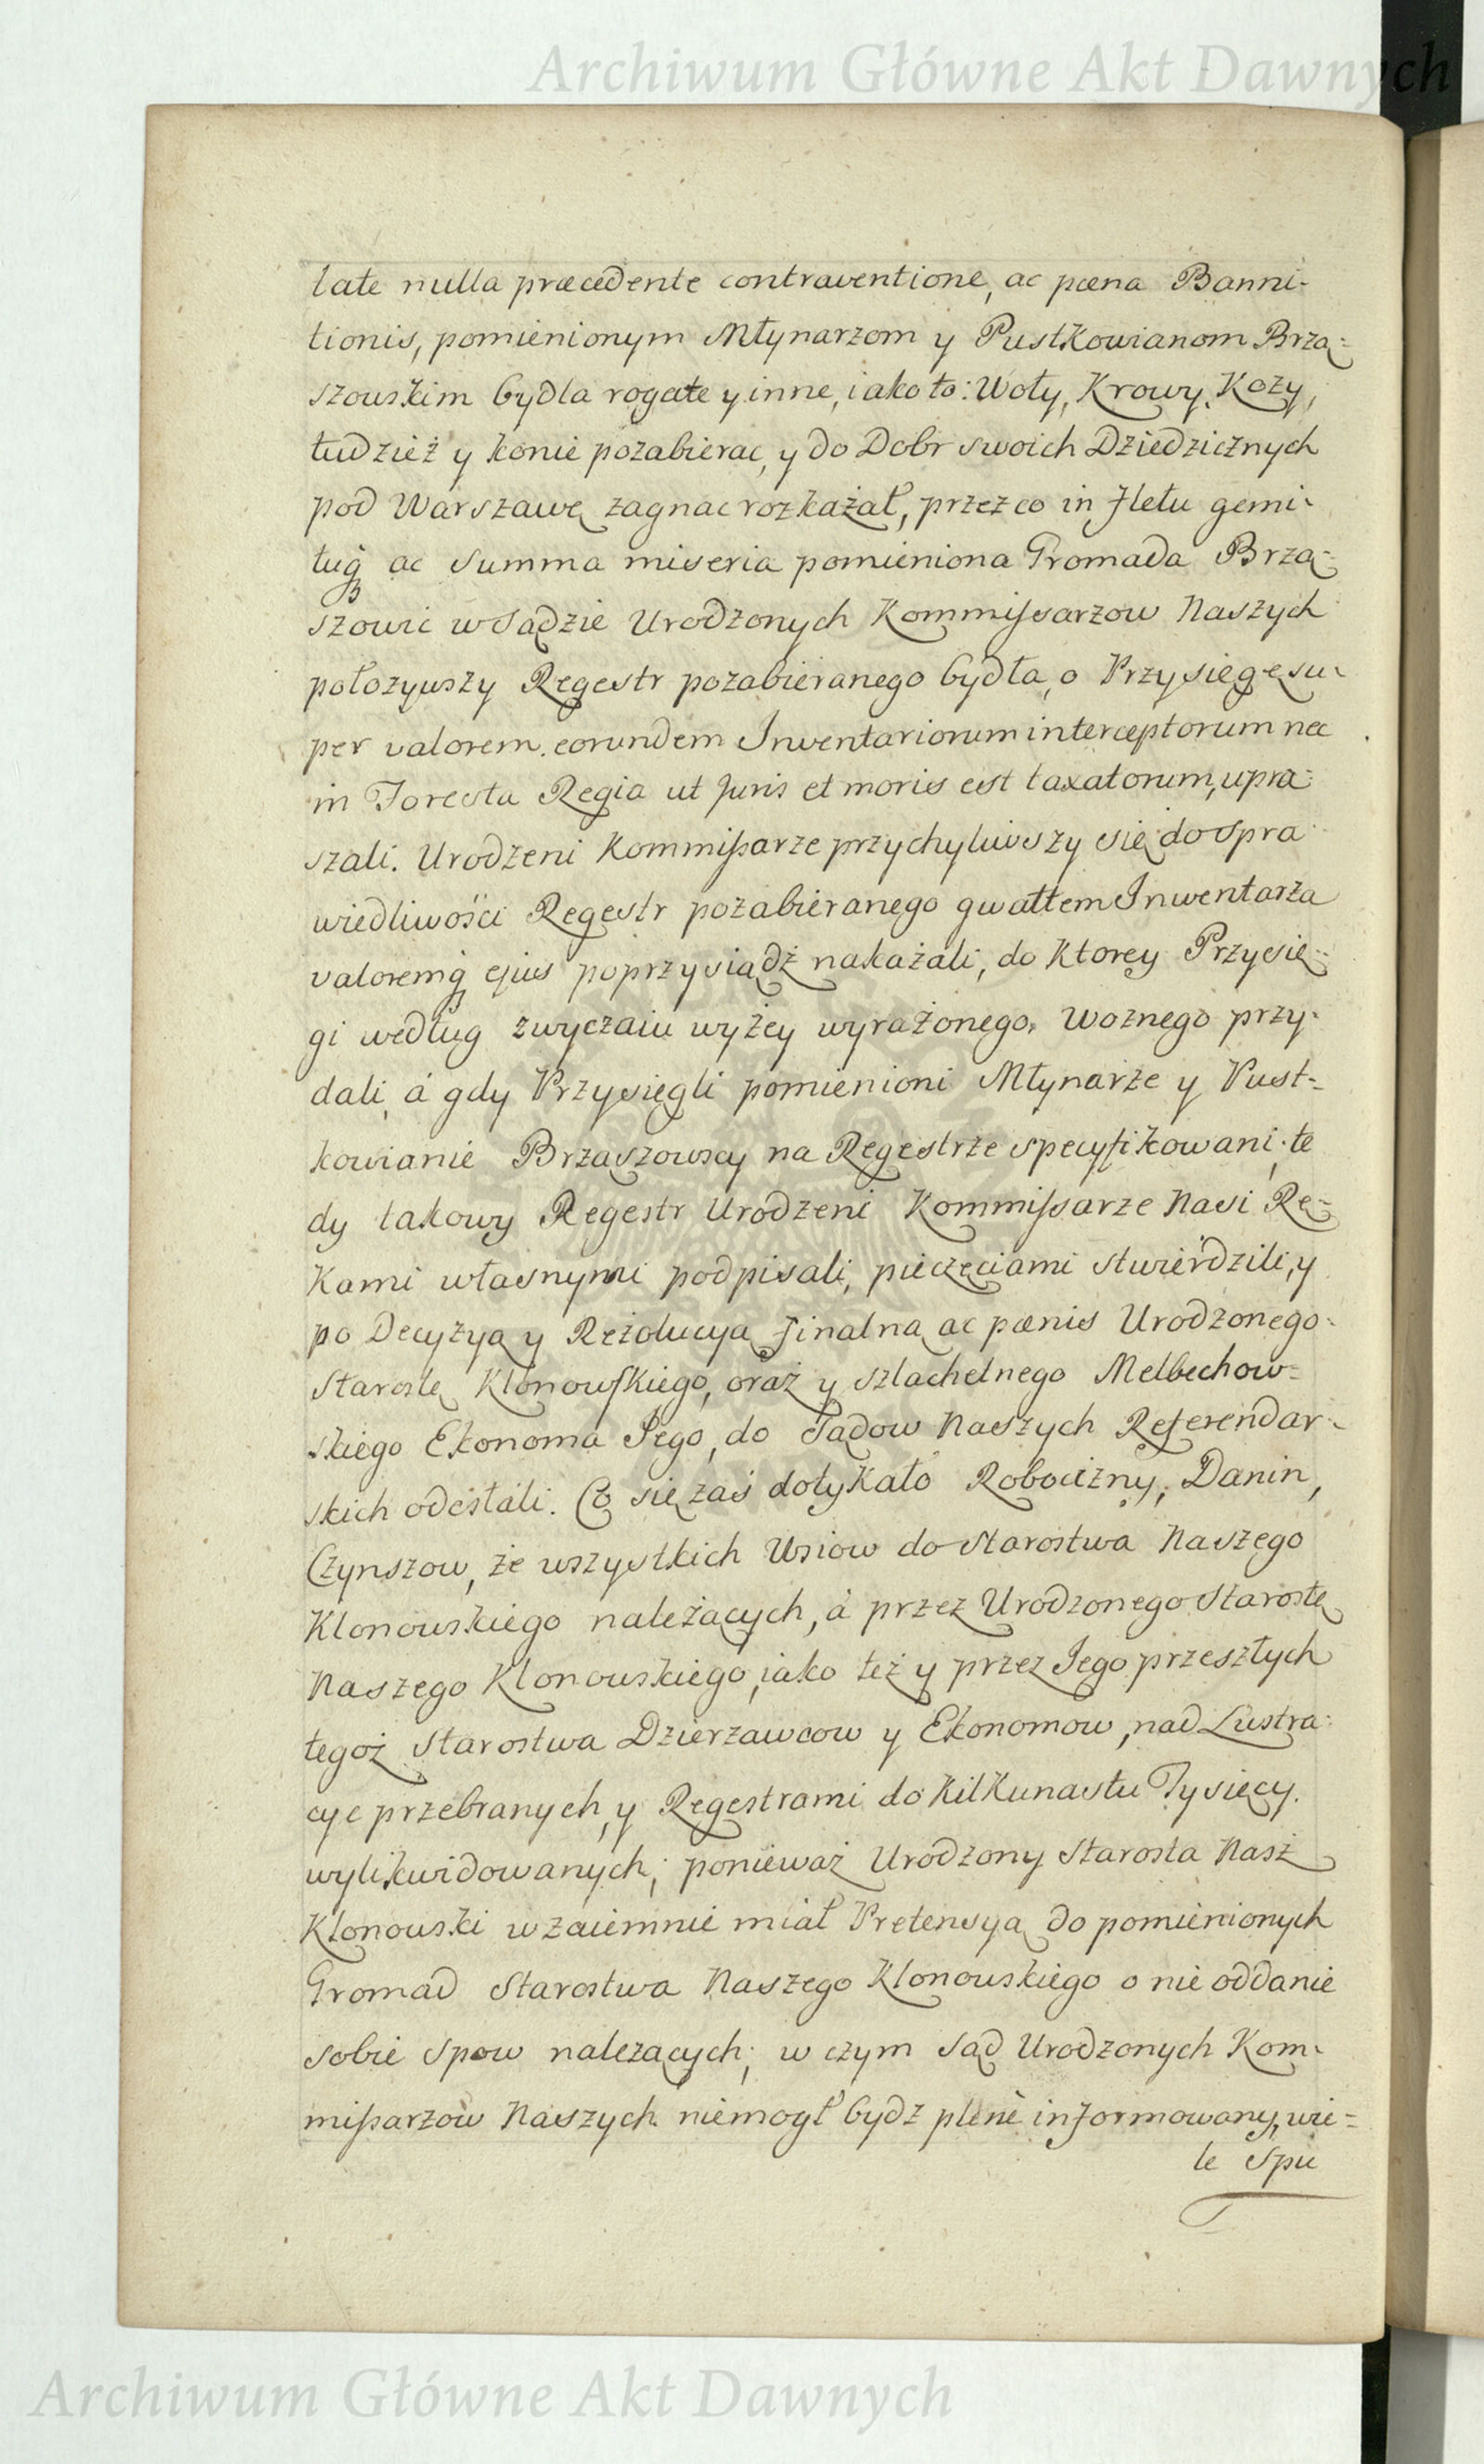 Archiwum Główne Akt Dawnych
late nulla præcedente contraventione, ac pæna Banni-
tionis, pomienionym Młynarzom y Pustkowianom Brzą=
szowskim bydla rogate y inne, iako to: Woły, Krowy, Kozy,
tudzież y konie pozabierac, y do Dobr swoich Dziedzicznych
pod Warszawę zagnac rozkażał, przez co in fletu gemi-
tuq̃ ac summa miseria pomieniona Gromada Brzą=
szowic w Sądzie Urodzonych Kommissarzow Naszych
położywszy Regestr pozabieranego bydła, o Przysięgę su-
per valorem eorundem Inwentariorum interceptorum nec
in Foresta Regia ut Juris et moris est taxatorum, upra-
szali. Urodzeni Kommissarze przychyliwszy się do spra-
wiedliwości Regestr pozabieranego gwałtem Inwentarza
valoremq̃ ejus poprzysiądź nakażali, do ktorey Przysię-
gi według zwyczaiu wyżey wyrażonego, Woznego przy-
dali, á gdy Przysięgli pomienioni Młynarże y Pust-
kowianie Brząszowscy na Regestrze specyfikowani, te
dy takowy Regestr Urodzeni Kommissarze Nasi Rę-
kami własnymi podpisali, pieczęciami stwierdzili, y
po Decyzyą y Reżolucyą finalną ac pænis Urodzonego
Starostę Klonowskiego, oraż y szlachetnego Melbechow-
skiego Ekonoma Jego, do Sądow Naszych Referendar-
skich odesłali. Co się zaś dotykało Robocizny, Danin,
Czynszow, że wszystkich Wsiow do Starostwa Naszego
Klonowskiego należących, á przez Urodzonego Starostę
Naszego Klonowskiego, iako też y przez Jego przeszłych
tegoż Starostwa Dzierzawcow y Ekonomow, nad Lustra-
cye przebranych, y Regestrami do kilkunastu Tysięcy
wylikwidowanych; ponieważ Urodzony Starosta Nasz
Klonowski wzaiemnie miał Pretensyą do pomienionych
Gromad Starostwa Naszego Klonowskiego o nie oddanie
sobie spow nalezących; w czym Sąd Urodzonych Kom-
missarzow Naszych niemogł bydz plenè informowany, wie=
le Spu
Archiwum Główne Akt Dawnych